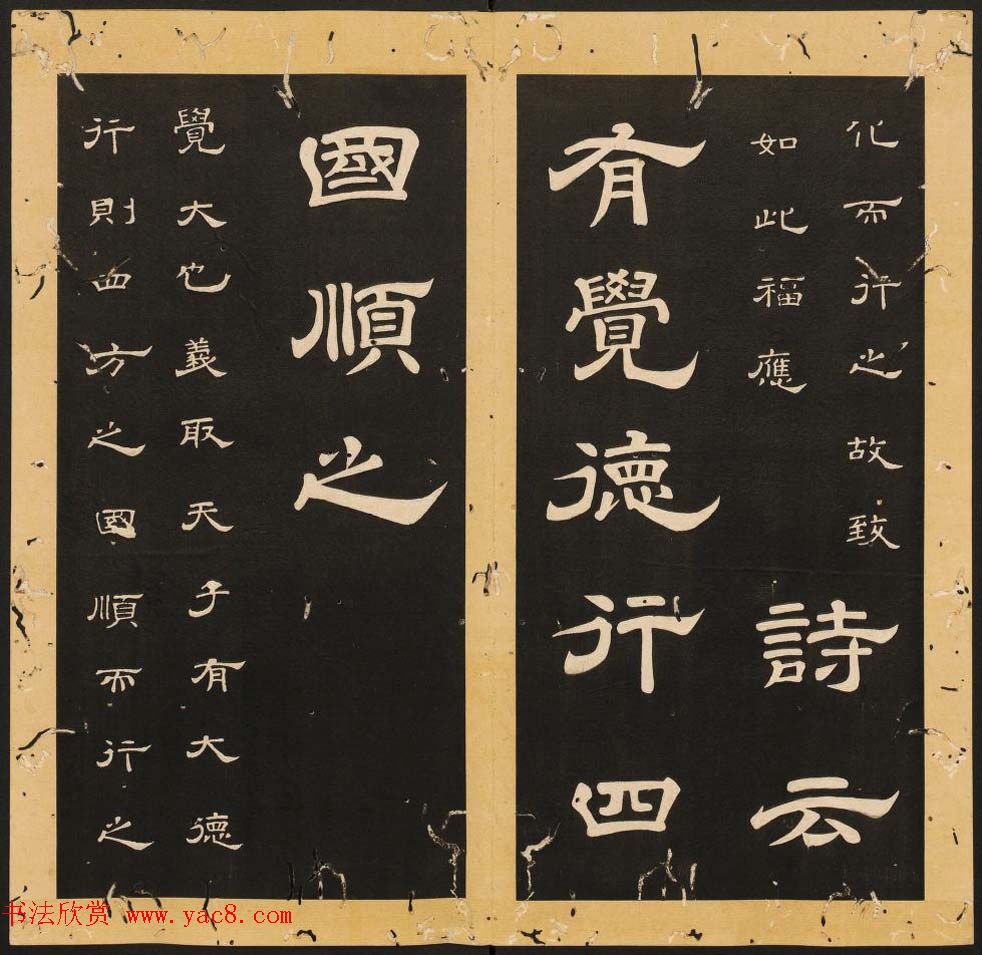 化而行之故致
如此福應
詩云
有覺德行四
國順之
覺大也義取天子有大德
行則四方之國順而行之
书法欣赏 www.yac8.com